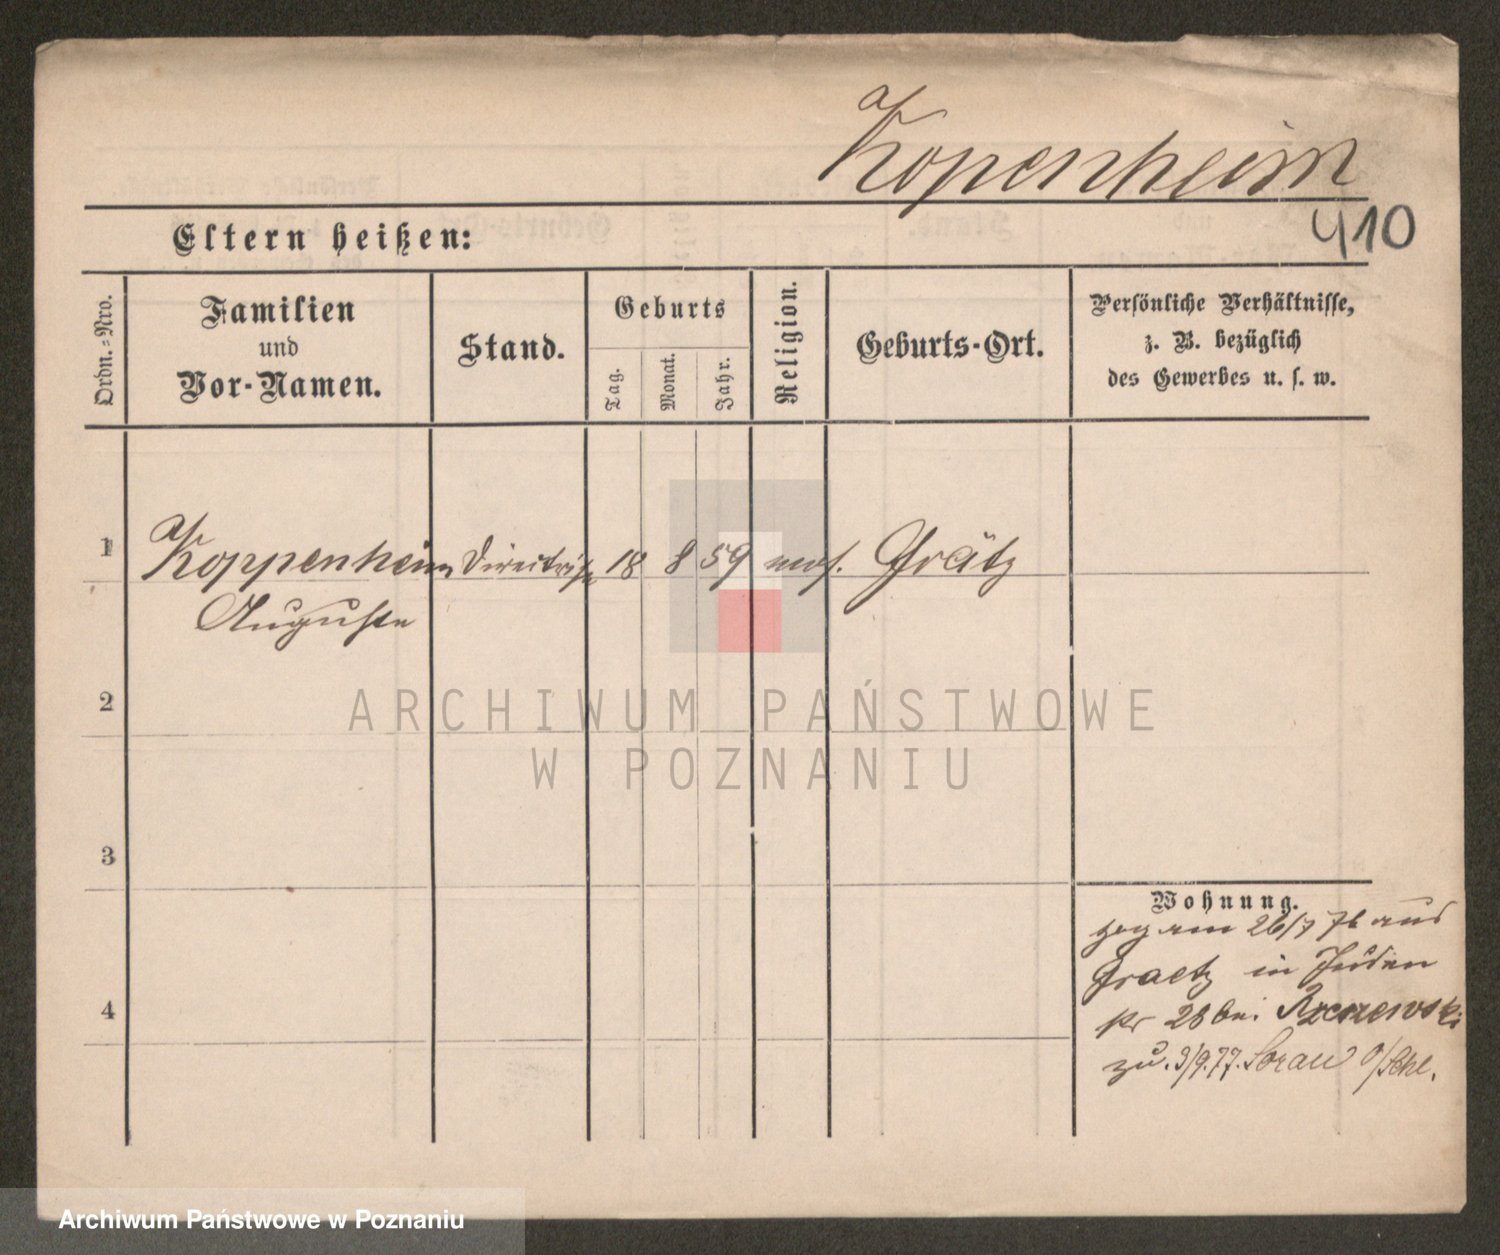 Kopenheim
410
Eltern heißen:
Ordn.=Nro.
Familien
und
Vor-Namen.
Stand.
Geburts
Tag.
Monat.
Jahr.
Religion.
Geburts-Ort.
Persönliche Verhältnisse,
z. B. bezüglich
des Gewerbes u. s. w.
1 Koppenheim Directrise 18 8 59 mos. Grätz
Auguste
2
3
4
Wohnung.
am 26/7 76 aus
Graetz in Juden
28 bei Rzeszewski
zu. 3/9.77. Sorau O/Schl.
ARCHIWUM PAŃSTWOWE
W POZNANIU
Archiwum Państwowe w Poznaniu